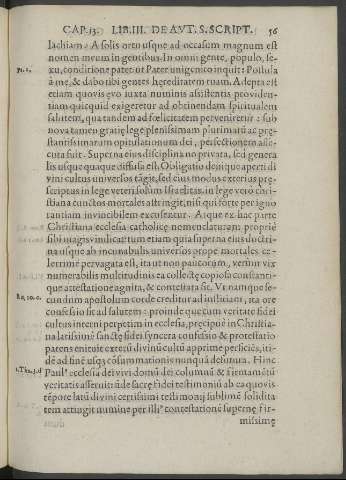 CAP. 13. LIB. III. DE AVT. S. SCRIPT. 56
lachiam: A solis ortu usque ad occasum magnum est
nomen meum in gentibus. In omni gente, populo, se-
Ps. 2. xu, conditione patet: ut Pater unigenito inquit: Postula
à me, & dabo tibi gentes hereditatem tuam. Adepta est
etiam quovis evo iuxta numinis assistentis providen-
tiam quicquid exigeretur ad obtinendam spiritualem
salutem, qua tandem ad fœlicitatem perveniretur: sub
nova tamen gratię lege plenissimam plurimùm ac prę-
stantissimarum opitulationum dei, perfectionem asse-
cuta fuit. Superna eius disciplina no privata, sed genera
lis usque quaque diffusa est. Obligatio denique aperti di
vini cultus universos tãgit, sed eius modus exterius prę-
scriptus in lege veteri solùm Israelitas, in lege verò chri-
stiana cunctos mortales astringit, nisi qui fortè per igno
rantiam invincibilem excusentur. Atque ex hac parte
Christiana ecclesia catholicę nomenclaturam propriè
sibi magis vindicat: tum etiam quia superna eius doctri-
na usque ab incunabulis universos prope mortales ce-
lerrimè pervagata est, ita ut non paucorum, verùm in-
numerabilis multitudinis ea collectę copiosa constanti-
que attestatione agnita, & contestata sit. Ut namque se-
Ro. 10. c. cundùm apostolum corde creditur ad iustitiam, ita ore
confessio fit ad salutem: proinde que cum veritate fidei
cultus interni perpetim in ecclesia, pręcipuè in Christia-
na latissimè sanctę fidei syncera confessio & protestatio
parens enituit externi divini cultũ apprime perficiēs, iti-
dē ad finē usq; cōsummationis nunquā defutura. Hinc
1. Tim. 3. d Paulꝰ ecclesiā dei vivi domũ dei columnã & firmamētũ
veritatis asseruit: à de sacrę fidei testimoniũ ab ea quovis
tēpore latũ divini certissimi testimonij sublimē solidita
tem attingit numine per illiꝰ contestationē supernę fir-
missimę